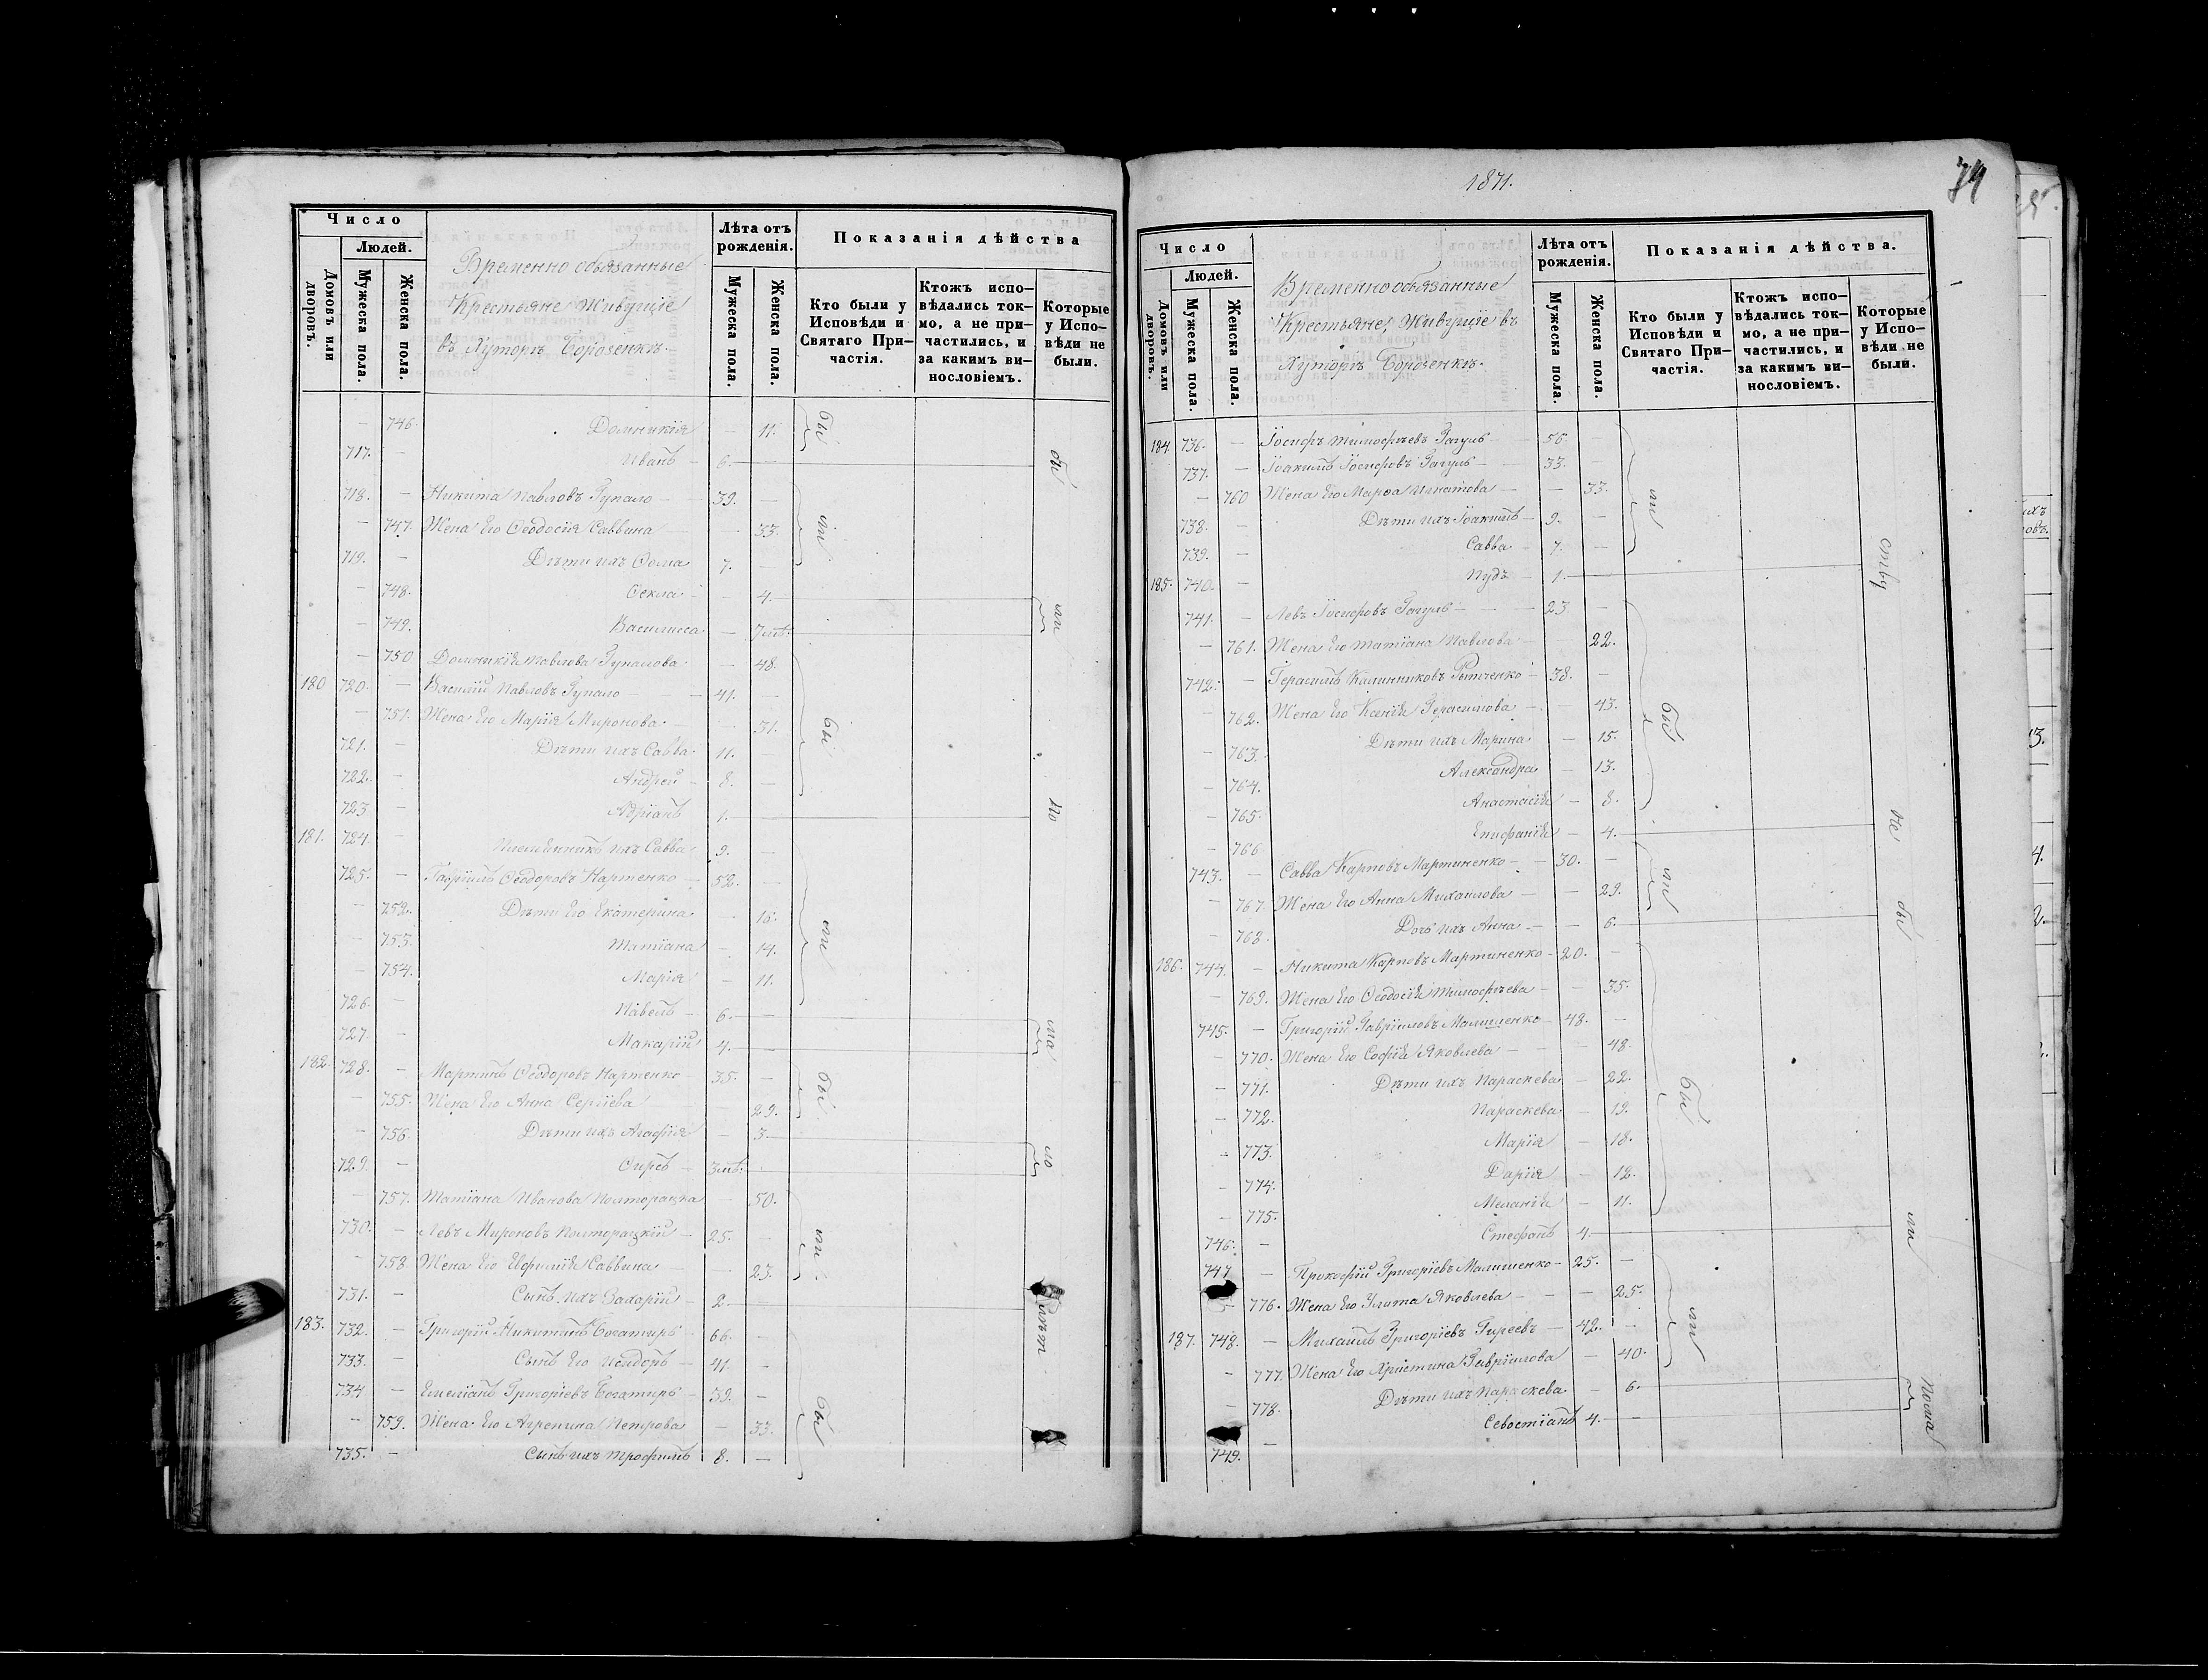 Число
Людей.
Домовъ или дворовъ.
Мужеска пола.
Женска пола.
Временно обязанные
Крестьяне Живущіе
въ Хуторѣ Борозенкѣ.
Лѣта отъ рожденія.
Мужеска пола.
Женска пола.
Показанія дѣйства
Кто были у Исповѣди и Святаго Причастія.
Ктожъ исповѣдались токмо, а не причастились, и за какимъ винословіемъ.
Которые у Исповѣди не были.
— 746. Домникія — 11.
717. — Иванъ — 6. —
718. — Никита Павловъ Зупало 39. —
— 747. Жена Его Ѳеодосія Саввина — 33.
719. — Дѣти ихъ Ѳома 7. —
— 748. Ѳекла — 4.
— 749. Василисса — 7 мѣ.
— 750 Домникія Павлова Зупалова — 48.
180 720. — Василій Павловъ Зупало — 41. —
— 751. Жена Его Марія Миронова — 31.
721. — Дѣти ихъ Савва 11. —
722. — Андрей — 8. —
723 — Адріанъ 1. —
181. 724. — Племянникъ ихъ Савва 9. —
725. — Гавріилъ Ѳеодоровъ Нартенко — 52. —
— 752. Дѣти Его Екатерина — 16.
— 753. Татіана — 14.
— 754. Марія — 11.
726. — Павелъ — 6. —
727. — Макарій 4. —
182 728. — Мартинъ Ѳеодоровъ Нартенко 35. —
— 755. Жена Его Анна Сергіева — 29.
— 756. Дѣти ихъ Агафія — 3.
729. — 3 мѣ.
— 757. Татіана Иванова Полторацка — 50.
730. — Левъ Мироновъ Полторацкій — 25. —
— 758. Жена Его Евфимія Саввина — 23.
731. — Сынъ ихъ Захарій — 2.
183. 732. — Григорій Никитинъ Богатырь — 66. —
733. — Сынъ Его Исидоръ — 41. —
734 — Емеліанъ Григоріевъ Богатырь — 39. —
— 759. Жена Его Агрепина Петрова — 33.
735. — Сынъ ихъ Трофимъ 8. —
бы
ли
бы
ли
бы
ли
бы
бы
ли
по
ма
ло
лѣт
1871.
74
Число
Людей.
Домовъ или дворовъ.
Мужеска пола.
Женска пола.
Временно обязанные
Крестьяне, Живущіе въ
Хуторѣ Борозенкѣ.
Лѣта отъ рожденія.
Мужеска пола.
Женска пола.
Показанія дѣйства.
Кто были у Исповѣди и Святаго Причастія.
Ктожъ исповѣдались токмо, а не причастились, и за какимъ винословіемъ.
Которые у Исповѣди не были.
184. 736. — Іосифъ Тимофѣевъ Загуль — 56.
737. — Іоакимъ Іосифовъ Загуль — 33. —
— 760 Жена Его Марѳа Игнатова — 33.
738. — Дѣти ихъ Іоакимъ — 9. —
739. — Савва — 7. —
185. 740. — Пудъ — 1.
741. — Левъ Іосифовъ Загуль — 23 —
— 761. Жена Его Татіана Павлова — 22.
742. — Герасимъ Калинниковъ — 38. —
— 762. Жена Его Ксенія Герасимова — 43.
— 763. Дѣти ихъ Марина — 15.
— 764. Александра — 13.
— 765. Анастасія — 8.
— 766 Епифанія — 4.
743. — Савва Карповъ Мартиненко — 30. —
— 767. Жена Его Анна Михаилова — 29.
— 768. Дочь ихъ Анна — 6.
186. 744. — Никита Карповъ Мартиненко — 20. —
— 769. Жена Его Ѳеодосія Тимофѣева — 35.
745. — Григорій Гавріиловъ Малишенко — 48. —
— 770. Жена Его Софія Яковлева — 48.
— 771. Дѣти ихъ Параскева — 22.
— 772. Параскева — 19.
— 773. Марія — 18.
— 774. Дарія — 12.
— 775. Меланія — 11.
746. — Стефанъ 4.
747 — Прокофій Григоріевъ Малишенко — 25. —
— 776. Жена Его Улита Яковлева — 25.
187. 748. — Михаилъ Григоріевъ Гиреевъ — 42. —
— 777. Жена Его Христина Гавріилова — 40.
— 778. Дѣти ихъ Параскева — 6.
749. — Севостіанъ 4. —
ли
бы
ли
бы
ли
ству
не
бы
ли